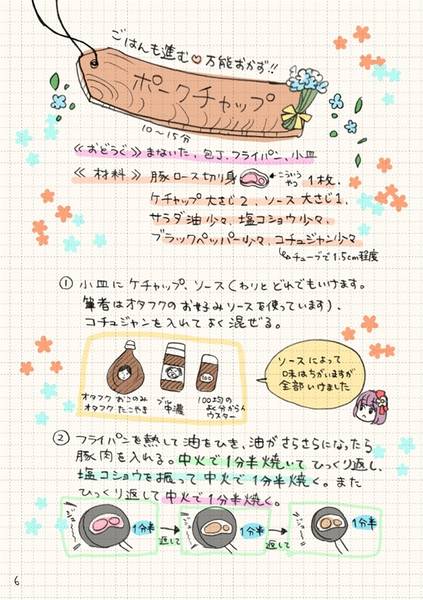 ごはんも進む♡万能おかず!!
ポークチャップ
10〜15分
《おどうぐ》まないた、包丁、フライパン、小皿
《材料》豚ロース切り身 こういうやつ 1枚、
ケチャップ 大さじ2、ソース 大さじ1、
サラダ油 少々、塩コショウ 少々、
ブラックペッパー少々、コチュジャン少々
チューブで1.5cm程度
① 小皿にケチャップ、ソース(わりとどれでもいけます。
筆者はオタフクのお好みソースを使っています)、
コチュジャンを入れてよく混ぜる。
オタフク おこのみ
オタフク たこやき
ブル 中濃
100均の
よく分からん
ウスター
ソースによって
味はちがいますが
全部いけました
② フライパンを熱して油をひき、油がさらさらになったら
豚肉を入れる。中火で1分半焼いてひっくり返し、
塩コショウを振って中火で1分半焼く。また
ひっくり返して中火で1分半焼く。
1分半
返して
1分半
返して
1分半
6